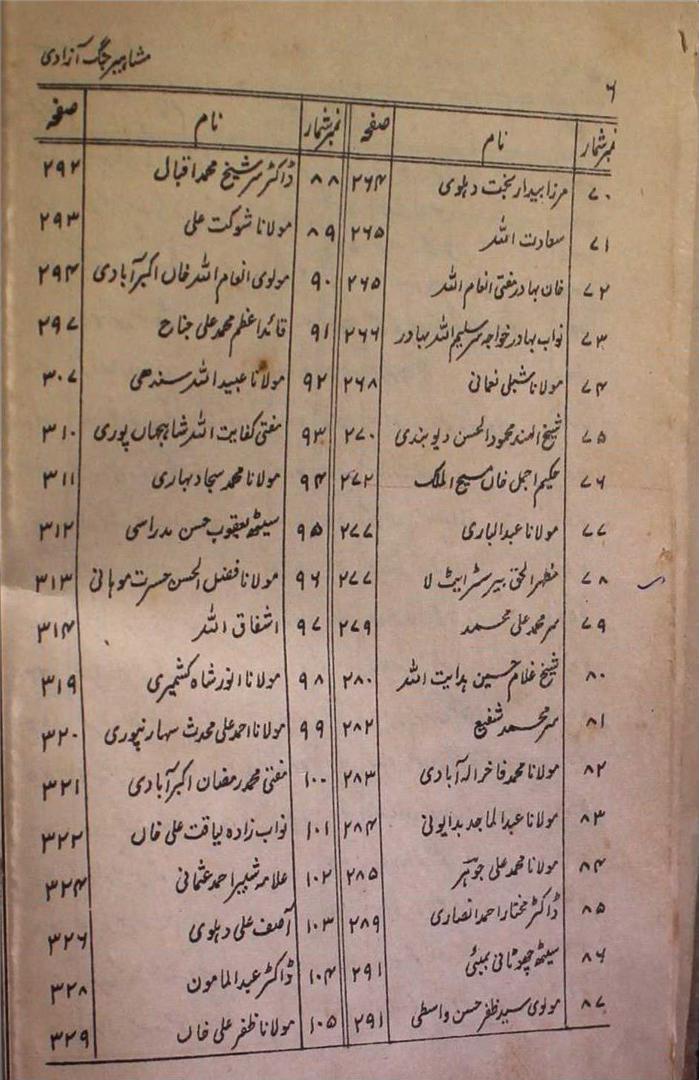 ۶
مشاہیر جنگ آزادی
نمبر شمار نام صفحہ
۷۰ مرزا بیدار بخت دہلوی ۲۶۴
۷۱ سعادت اللہ ۲۶۵
۷۲ خان بہادر مفتی انعام اللہ ۲۶۵
۷۳ نواب بہادر خواجہ سر سلیم اللہ بہادر ۲۶۶
۷۴ مولانا شبلی نعمانی ۲۶۸
۷۵ شیخ الہند محمود الحسن دیوبندی ۲۷۰
۷۶ حکیم اجمل خاں مسیح الملک ۲۷۲
۷۷ مولانا عبدالباری ۲۷۷
۷۸ مظہر الحق بیرسٹر ایٹ لا ۲۷۷
۷۹ سر محمد علی محمد ۲۷۹
۸۰ شیخ غلام حسین ہدایت اللہ ۲۸۰
۸۱ سر محمد شفیع ۲۸۲
۸۲ مولانا محمد فاخر الہ آبادی ۲۸۳
۸۳ مولانا عبدالماجد بدایونی ۲۸۴
۸۴ مولانا محمد علی جوہر ۲۸۵
۸۵ ڈاکٹر مختار احمد انصاری ۲۸۹
۸۶ سیٹھ چھوٹانی بمبئی ۲۹۱
۸۷ مولوی سید ظفر حسن واسطی ۲۹۱
نمبر شمار نام صفحہ
۸۸ ڈاکٹر سر شیخ محمد اقبال ۲۹۲
۸۹ مولانا شوکت علی ۲۹۳
۹۰ مولوی انعام اللہ خاں اکبر آبادی ۲۹۴
۹۱ قائد اعظم محمد علی جناح ۲۹۷
۹۲ مولانا عبید اللہ سندھی ۳۰۷
۹۳ مفتی کفایت اللہ شاہجہاں پوری ۳۱۰
۹۴ مولانا محمد سجاد بہاری ۳۱۱
۹۵ سیٹھ یعقوب حسن مدراسی ۳۱۲
۹۶ مولانا فضل الحسن حسرت موہانی ۳۱۳
۹۷ اشفاق اللہ ۳۱۴
۹۸ مولانا انور شاہ کشمیری ۳۱۹
۹۹ مولانا احمد علی محدث سہارنپوری ۳۲۰
۱۰۰ مفتی محمد رمضان اکبر آبادی ۳۲۱
۱۰۱ نواب زادہ لیاقت علی خاں ۳۲۲
۱۰۲ علامہ شبیر احمد عثمانی ۳۲۴
۱۰۳ آصف علی دہلوی ۳۲۶
۱۰۴ ڈاکٹر عبدالمامون ۳۲۸
۱۰۵ مولانا ظفر علی خاں ۳۲۹